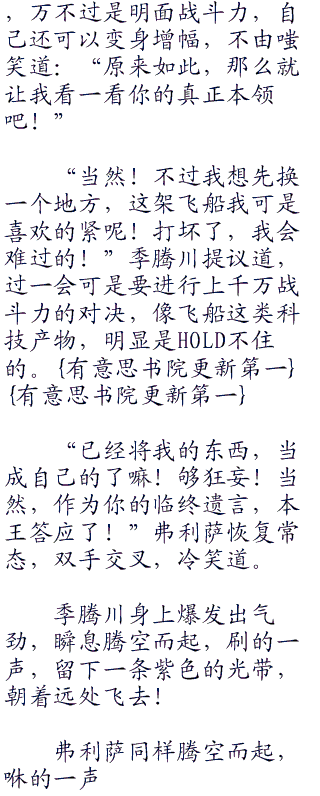 ，万不过是明面战斗力，自
己还可以变身增幅，不由嗤
笑道：“原来如此，那么就
让我看一看你的真正本领
吧！”
“当然！不过我想先换
一个地方，这架飞船我可是
喜欢的紧呢！打坏了，我会
难过的！”季腾川提议道，
过一会可是要进行上千万战
斗力的对决，像飞船这类科
技产物，明显是HOLD不住
的。{有意思书院更新第一}
{有意思书院更新第一}
“已经将我的东西，当
成自己的了嘛！够狂妄！当
然，作为你的临终遗言，本
王答应了！”弗利萨恢复常
态，双手交叉，冷笑道。
季腾川身上爆发出气
劲，瞬息腾空而起，刷的一
声，留下一条紫色的光带，
朝着远处飞去！
弗利萨同样腾空而起，
咻的一声